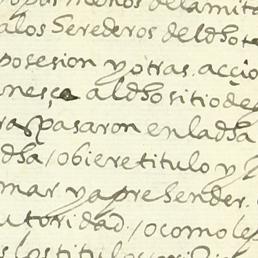 por menos de la mita
a los erederos del dho
posesion y otras accio
nesçe al dho sitio de
raspasaron en la dha
dha / obiere titulo y
mar y aprehender.
utoridad / o como le
los titulos